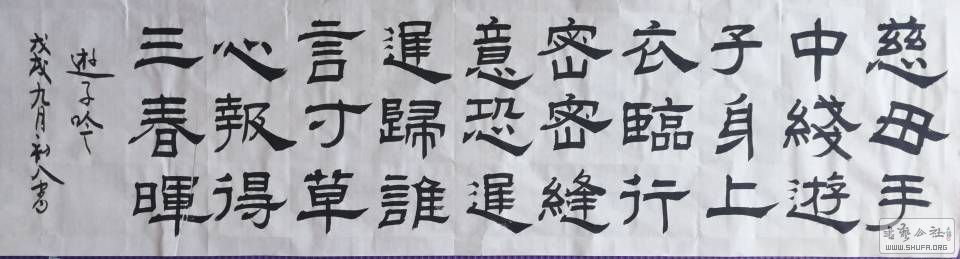 慈母手
中綫遊
子身上
衣臨行
密密縫
意恐遲
遲歸誰
言寸草
心報得
三春暉
遊子吟
戊戌九月书
公社
WWW.SHUFA.ORG